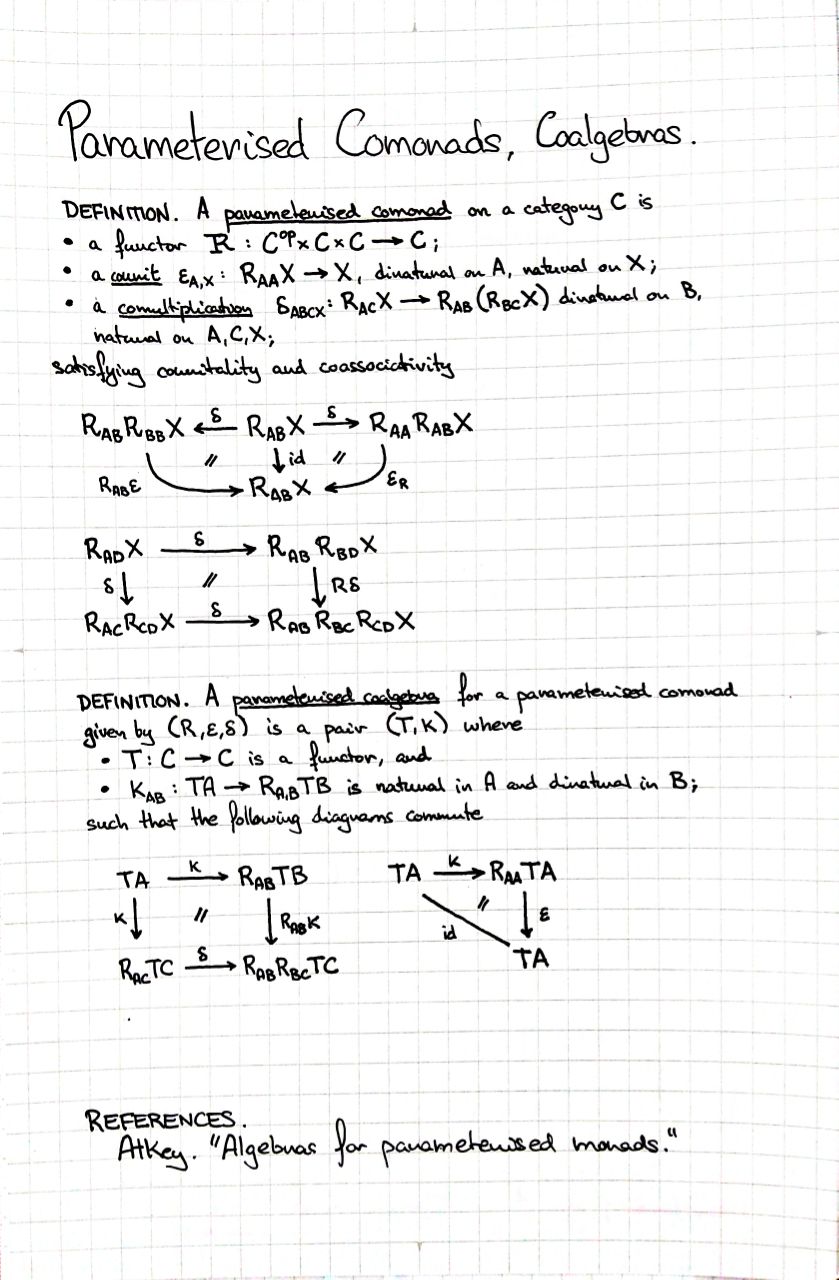 Parameterised Comonads, Coalgebras.
DEFINITION. A parameterised comonad on a category C is
• a functor R : C^op × C × C → C;
• a counit ε_A,X : R_AA X → X, dinatural on A, natural on X;
• a comultiplication δ_ABCX : R_AC X → R_AB (R_BC X) dinatural on B,
natural on A, C, X;
satisfying counitality and coassociativity
R_AB R_BB X ←δ— R_AB X —δ→ R_AA R_AB X
// ↓ id //
R_AB ε R_AB X ε_R
R_AD X —δ→ R_AB R_BD X
δ ↓ // ↓ Rδ
R_AC R_CD X —δ→ R_AB R_BC R_CD X
DEFINITION. A parameterised coalgebra for a parameterised comonad
given by (R, ε, δ) is a pair (T, K) where
• T : C → C is a functor, and
• K_AB : TA → R_A,B TB is natural in A and dinatural in B;
such that the following diagrams commute
TA —K→ R_AB TB TA —K→ R_AA TA
K ↓ // ↓ R_AB K id // ↓ ε
R_AC TC —δ→ R_AB R_BC TC TA
REFERENCES.
Atkey. "Algebras for parameterised monads."